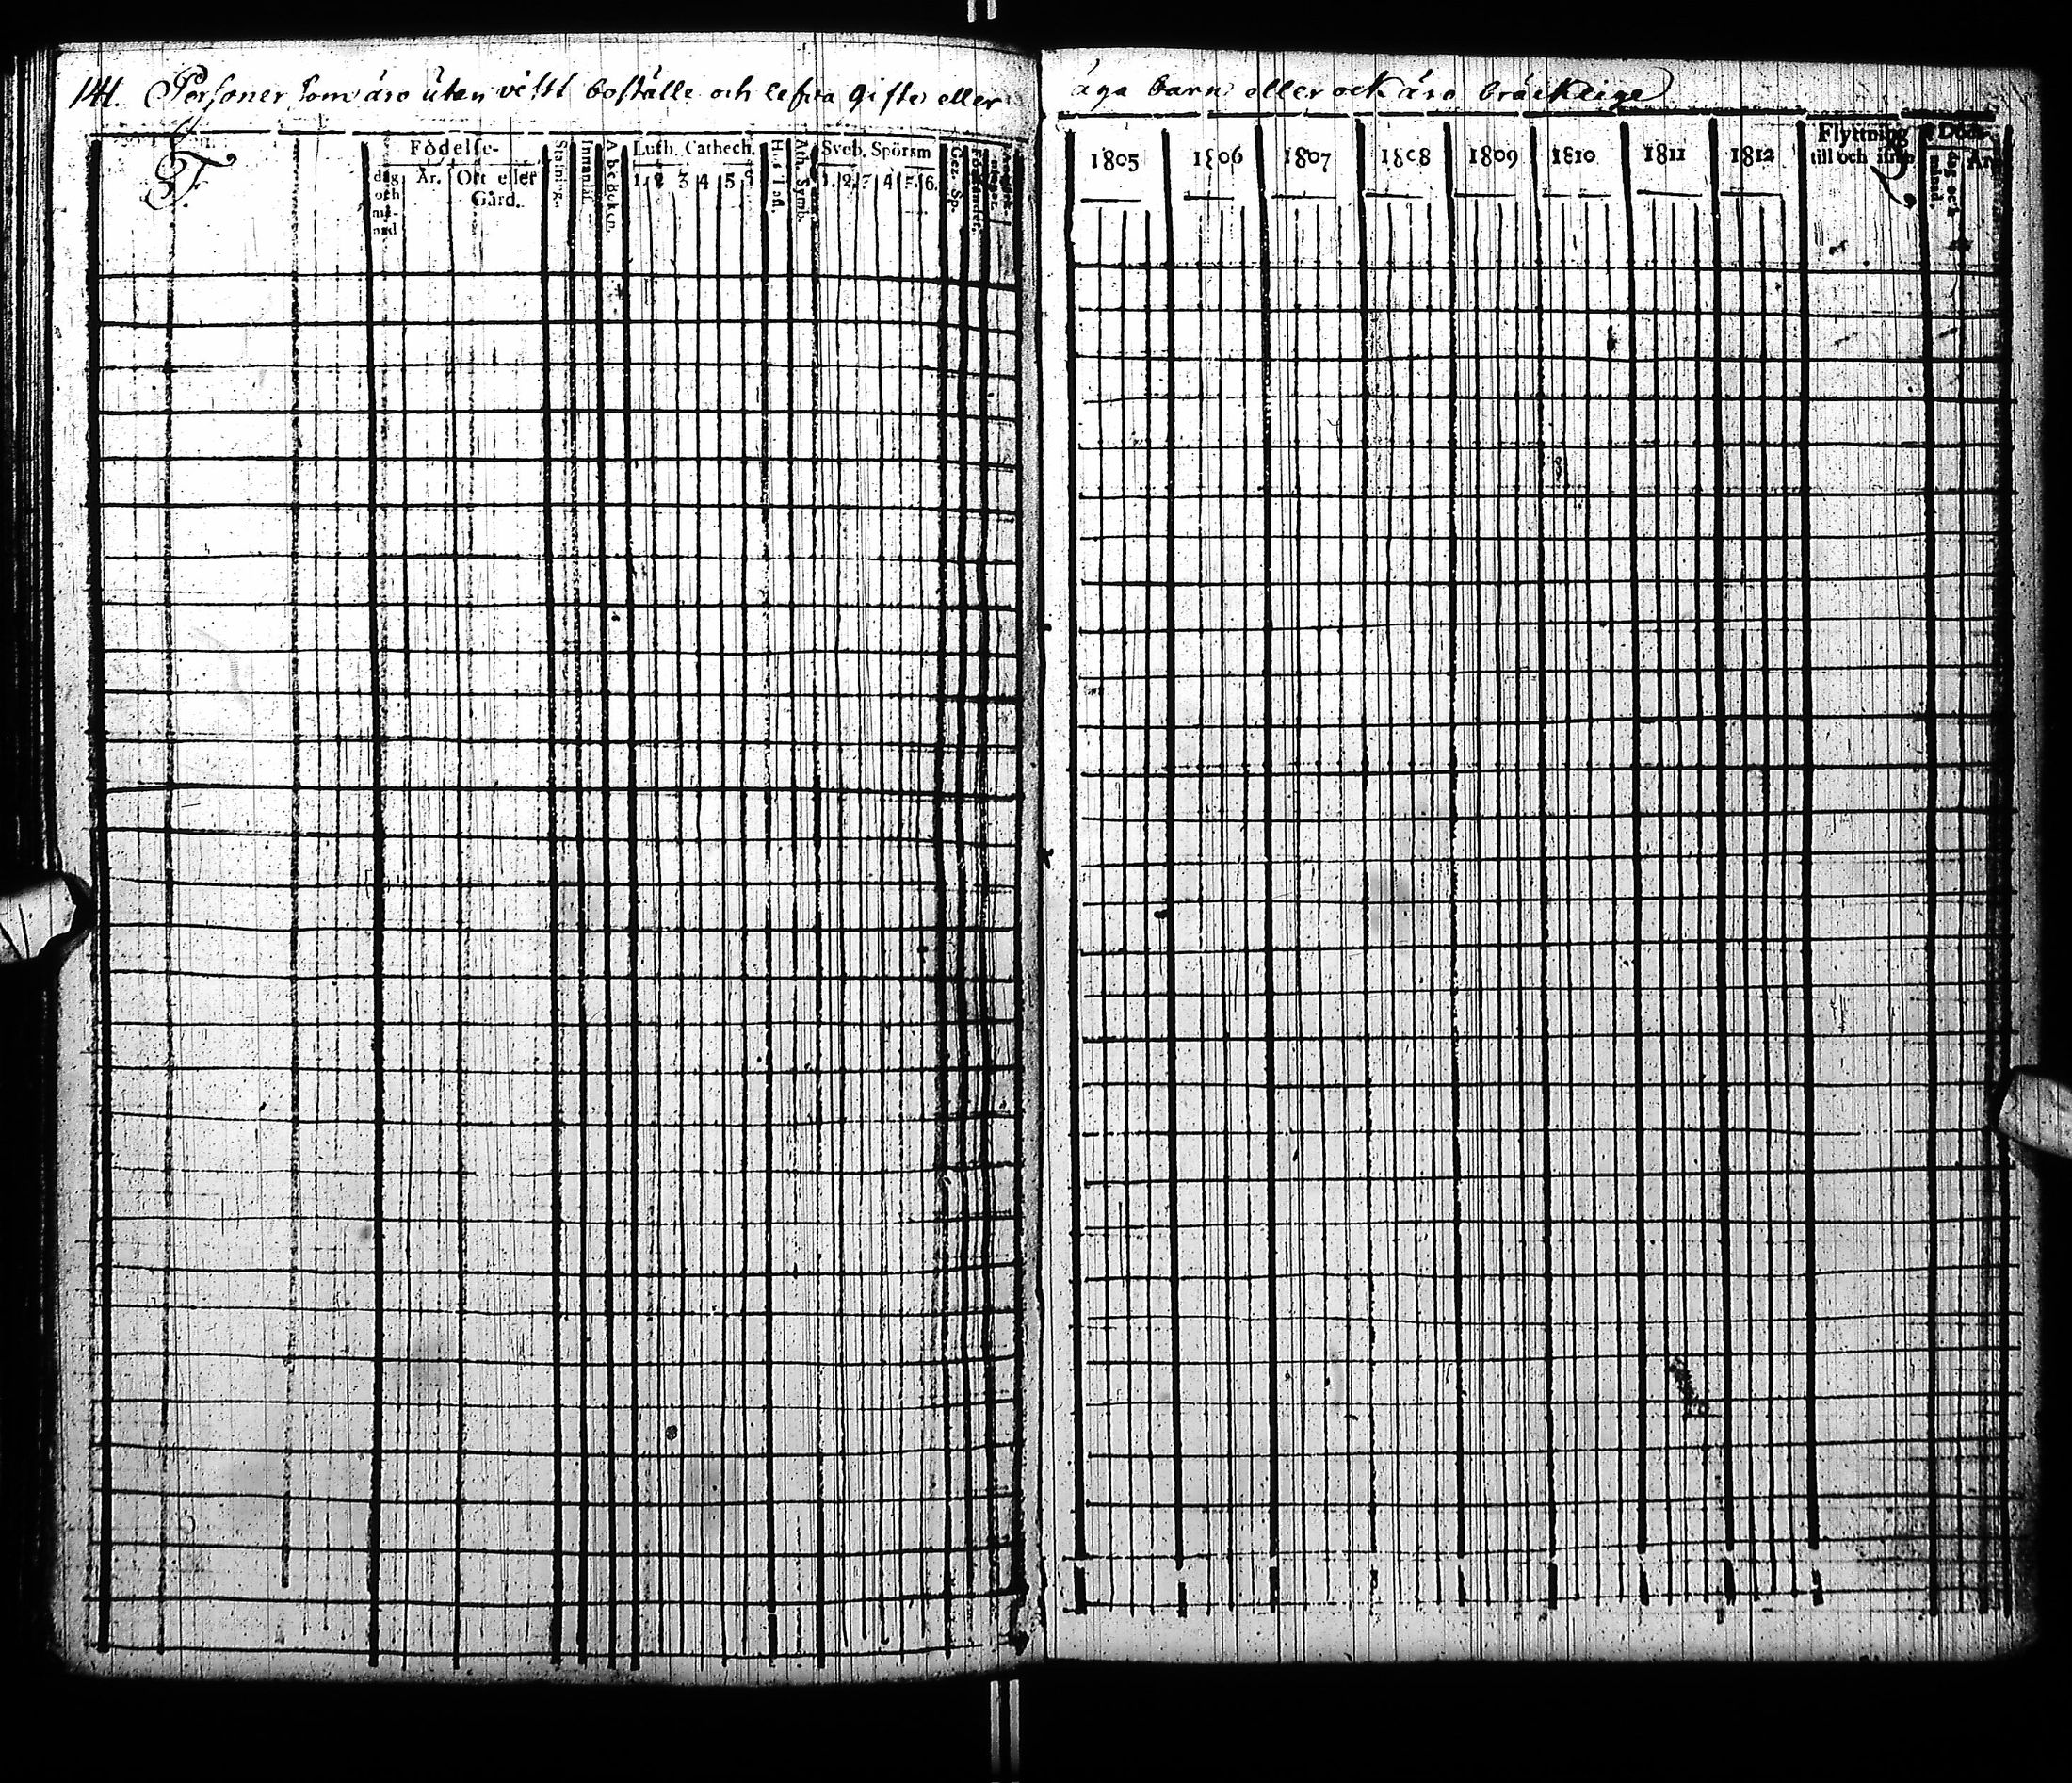 141. Personer som äro utan visst boställe och lefva gifte eller äga barn eller ock äro bräcklige
F.
Födelse-
dag och månad
År.
Ort eller Gård.
Innanläs.
A be Boken.
Luth. Cathech.
1. 2 3 4 5
Ath. Symb.
Sveb. Spörsm
1. 2. 3 4 5. 6.
Gez. Sp.
1805 1806 1807 1808 1809 1810 1811 1812
Flyttning
till och ifrån
Död
dag och månad.
År